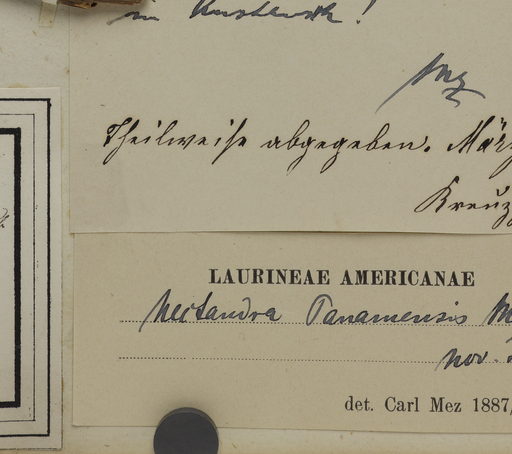 in Kurstwerth!
Mez
Theilweise abgegeben. März
Kreuz
LAURINEAE AMERICANAE
Nectandra Panamensis M
nov.
det. Carl Mez 1887/